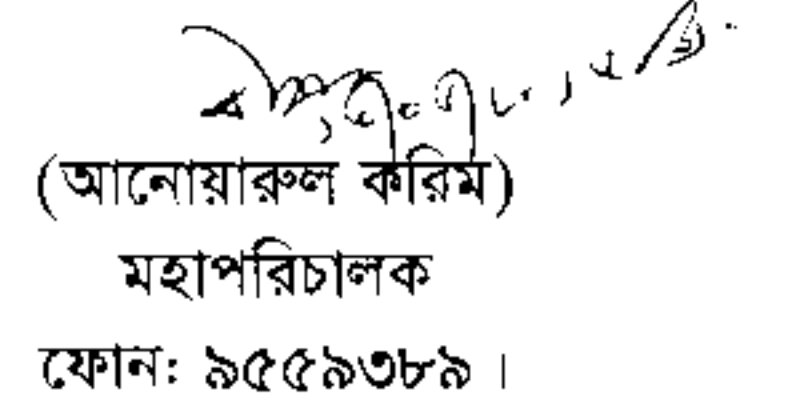 (আনোয়ারুল করিম)
মহাপরিচালক
ফোন: ৯৫৫৯৩৮৯।